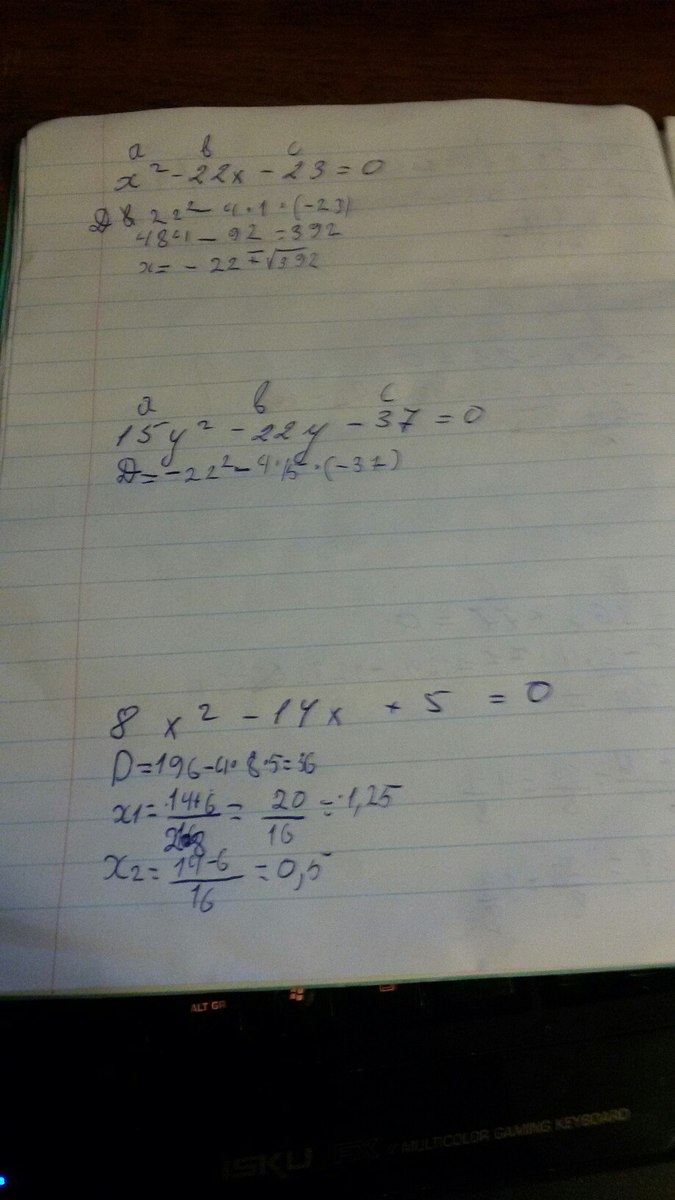 a в c
x² - 22x - 23 = 0
D 22² - 4·1·(-23)
484 - 92 = 392
x = - 22 ∓ √392
a в c
15y² - 22y - 37 = 0
D = -22² - 4·15·(-37)
8x² - 14x + 5 = 0
D = 196 - 4·8·5 = 36
x1 = 14+6 / 2·8 = 20/16 = 1,25
x2 = 14-6 / 16 = 0,5
ALT GR
iSKU MULTICOLOR GAMING KEYBOARD